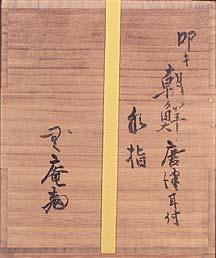 叩キ
朝鮮唐津耳付
水指
无庵